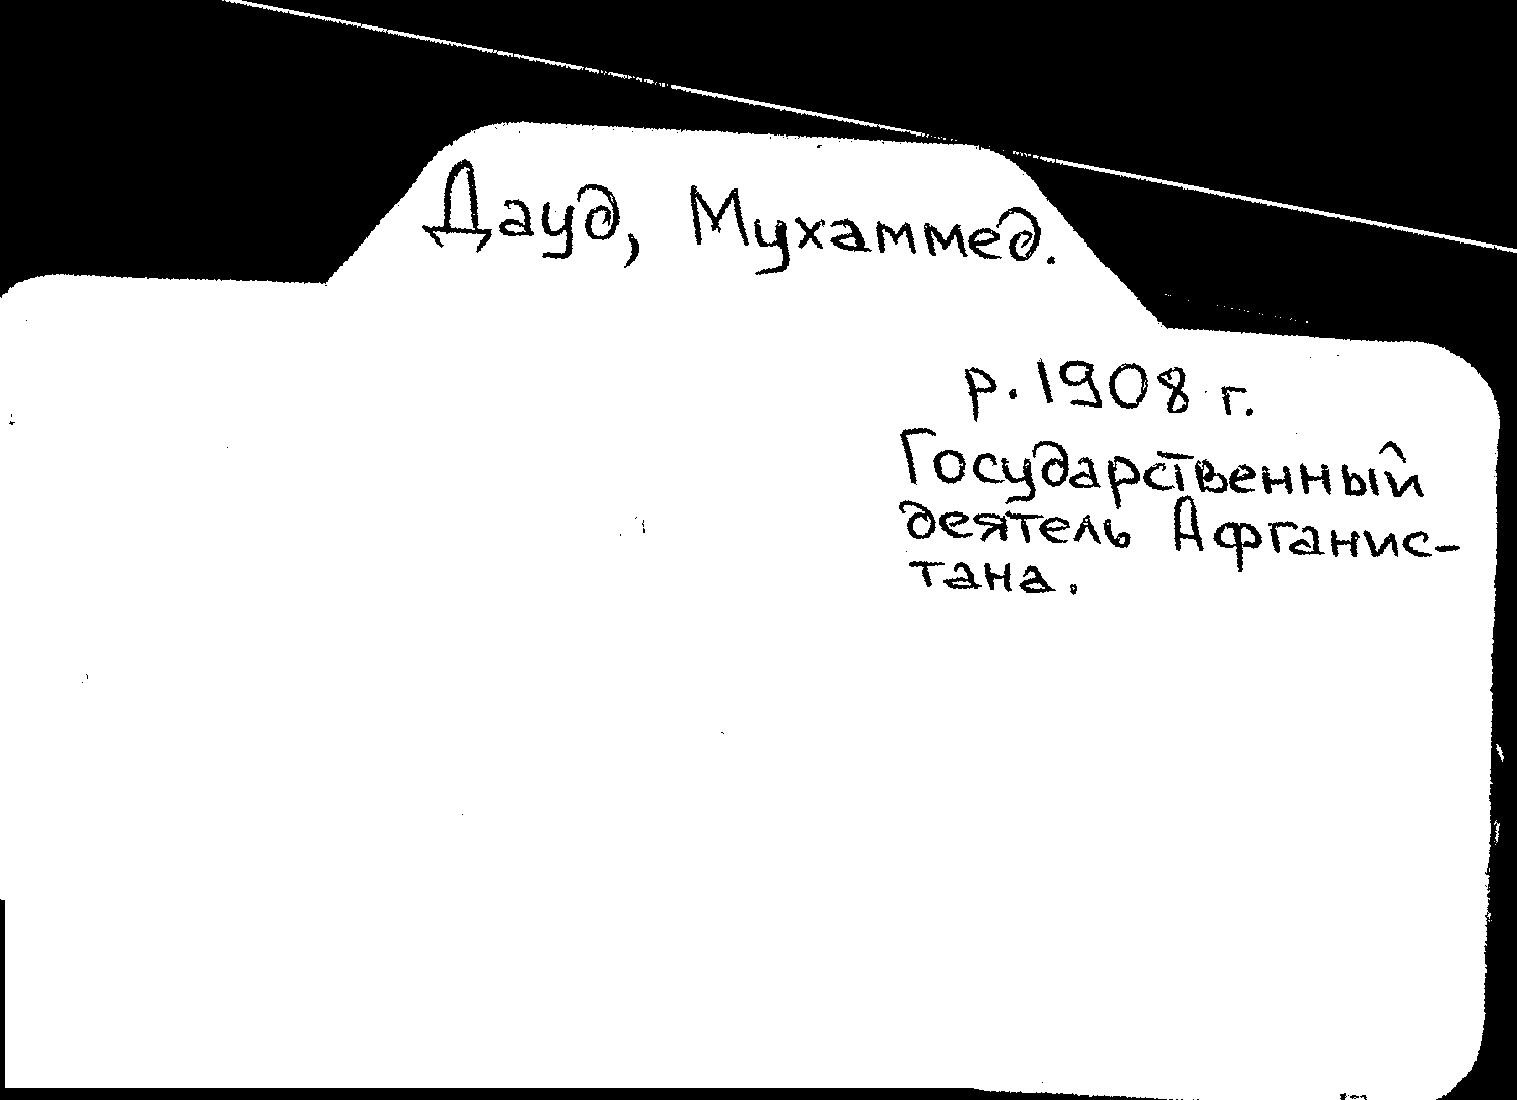 Дауд, Мухаммед.
р. 1908 г.
Государственный
деятель Афганис-
тана.